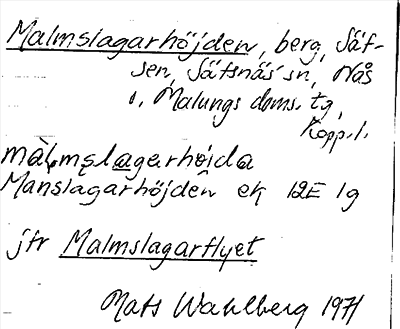 Malmslagarhöjden, berg, Säf-
sen, Säfsnäs sn, Nås
o. Malungs doms. tg,
Kopp. l.
màlmslagarhöida
Manslagarhöjden ek 12E 1g
jfr Malmslagarflyet
Mats Wahlberg 1971